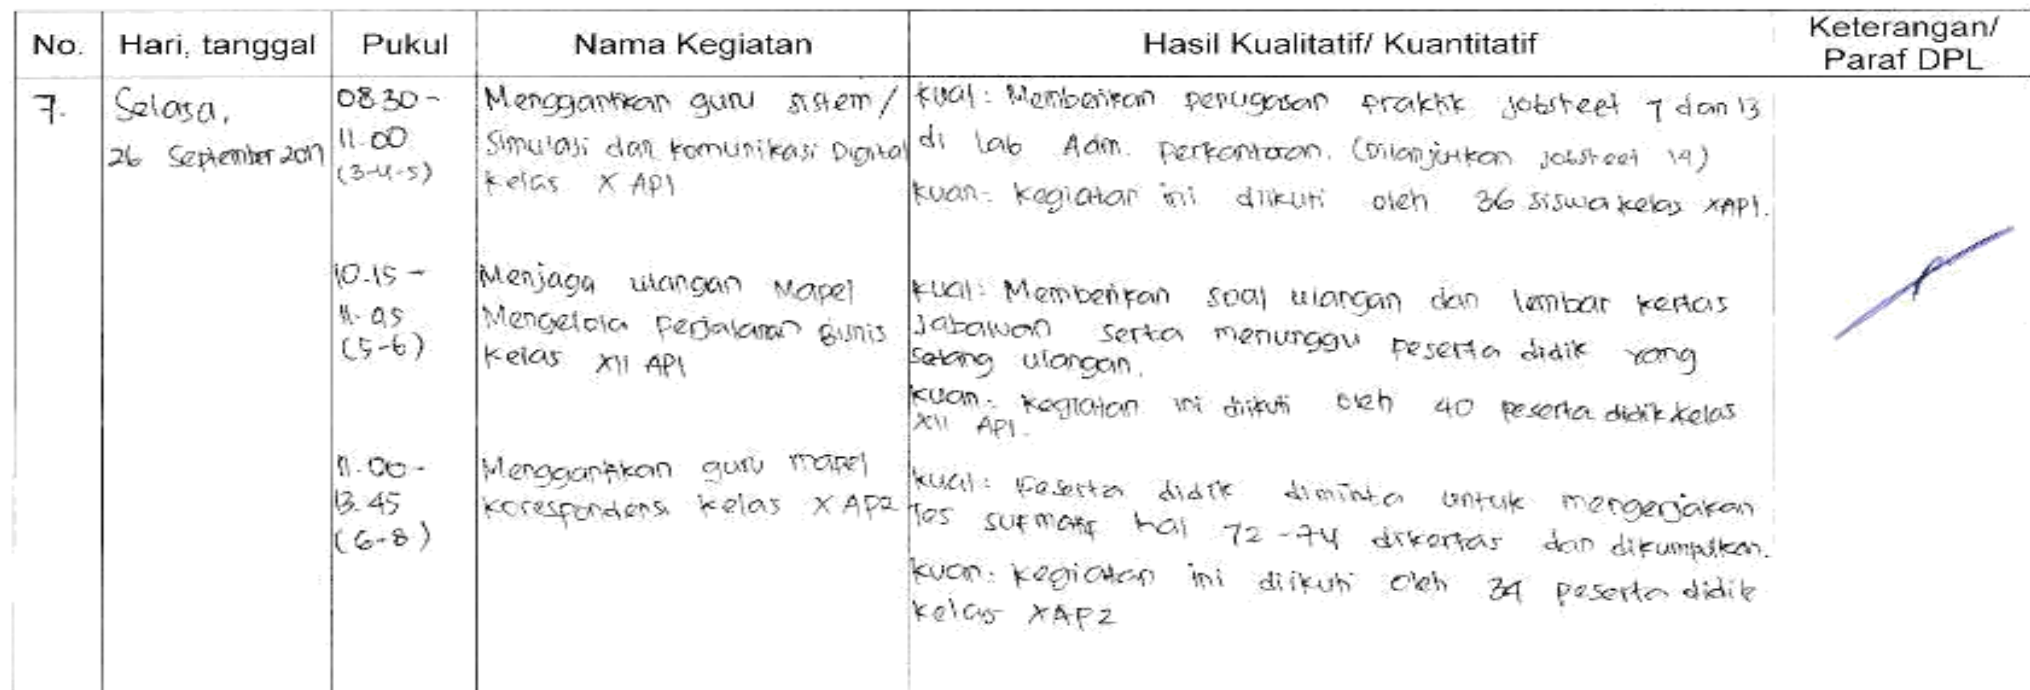 No. Hari, tanggal Pukul Nama Kegiatan Hasil Kualitatif/ Kuantitatif Keterangan/
Paraf DPL
7. Selasa,
26 September 2017
08.30 -
11.00
(3-4-5)
Menggantikan guru sistem /
Simulasi dan Komunikasi Digital
kelas X AP1
kual: Memberikan penugasan praktik jobsheet 7 dan 13
di Lab Adm. Perkantoran. (Dilanjutkan jobsheet 14)
kuan: kegiatan ini diikuti oleh 36 siswa kelas XAP1.
10.15 -
11.45
(5-6)
Menjaga ulangan Mapel
Mengelola Perjalanan Bisnis
kelas XII AP1
kual: Memberikan soal ulangan dan lembar kertas
Jabawan serta menunggu peserta didik yang
sedang ulangan.
kuan: kegiatan ini diikuti oleh 40 peserta didik kelas
XII AP1.
11.00 -
13.45
(6-8)
Menggantikan guru mapel
korespondensi kelas X AP2
kual: Peserta didik diminta untuk mengerjakan
tes hal 72-74 dikertas dan dikumpulkan.
kuan: kegiatan ini diikuti oleh 34 peserta didik
kelas XAP2